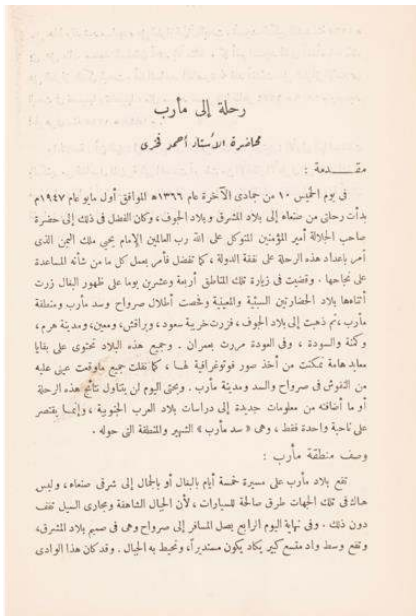 رحلة إلى مأرب
محاضرة الأستاذ أحمد فخرى
مقـــدمة :
فى يوم الخميس ١٠ من جمادى الآخرة عام ١٣٦٦ﻫ الموافق أول مايو عام ١٩٤٧م
بدأت رحلتى من صنعاء إلى بلاد المشرق وبلاد الجوف، وكان الفضل فى ذلك إلى حضرة
صاحب الجلالة أمير المؤمنين المتوكل على الله رب العالمين الإمام يحيى ملك اليمن الذى
أمر بإعداد هذه الرحلة على نفقة الدولة ، كما تفضل فأمر بعمل كل ما من شأنه المساعدة
على نجاحها . وقضيت فى زيارة تلك المناطق أربعة وعشرين يوما على ظهور البغال زرت
أثناءها بلاد الحضارتين السبئية والمعينية وفحصت أطلال صرواح وسد مأرب ومنطقة
مأرب ، ثم ذهبت إلى بلاد الجوف ، فزرت خربة سعود ، وبراقش ، ومعين ، ومدينة هرم ،
وكمنة والسودة ، وفى العودة مررت بعمران . وجميع هذه البلاد تحتوى على بقايا
معابد هامة تمكنت من أخذ صور فوتوغرافية لها ، كما نقلت جميع ماوقعت عينى عليه
من النقوش فى صرواح والسد ومدينة مأرب . وبحثى اليوم لن يتناول نتائج هذه الرحلة
أو ما أضافته من معلومات جديدة إلى دراسات بلاد العرب الجنوبية ، وإنمـا يقتصر
على ناحية واحدة فقط ، وهى « سد مأرب » الشهير والمنطقة التى حوله .
وصف منطقة مأرب :
تقع بلاد مأرب على مسيرة خمسة أيام بالبغال أو بالجمال إلى شرقى صنعاء ، وليس
هناك فى تلك الجهات طرق صالحة للسيارات ، لأن الجبال الشاهقة ومجارى السيل تقف
دون ذلك . وفى نهاية اليوم الرابع يصل المسافر إلى صرواح وهى فى صميم بلاد المشرق ،
وتقع وسط واد متسع كبير يكاد يكون مستديراً ، وتحيط به الجبال . وقد كان هذا الوادى